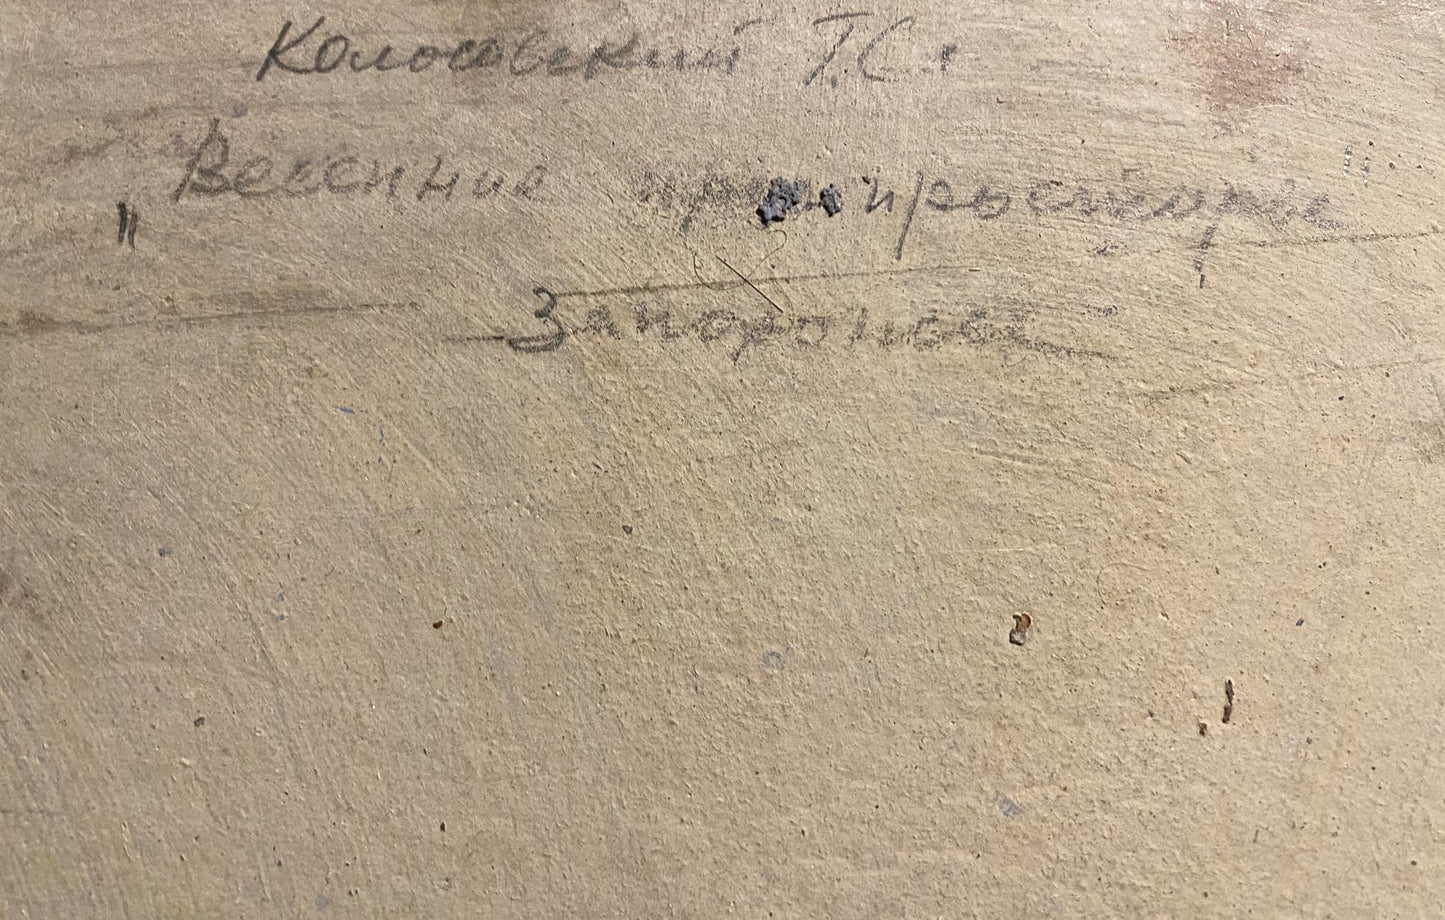 Колосовский Г.С.
„Весенние просторы"
Запорожье